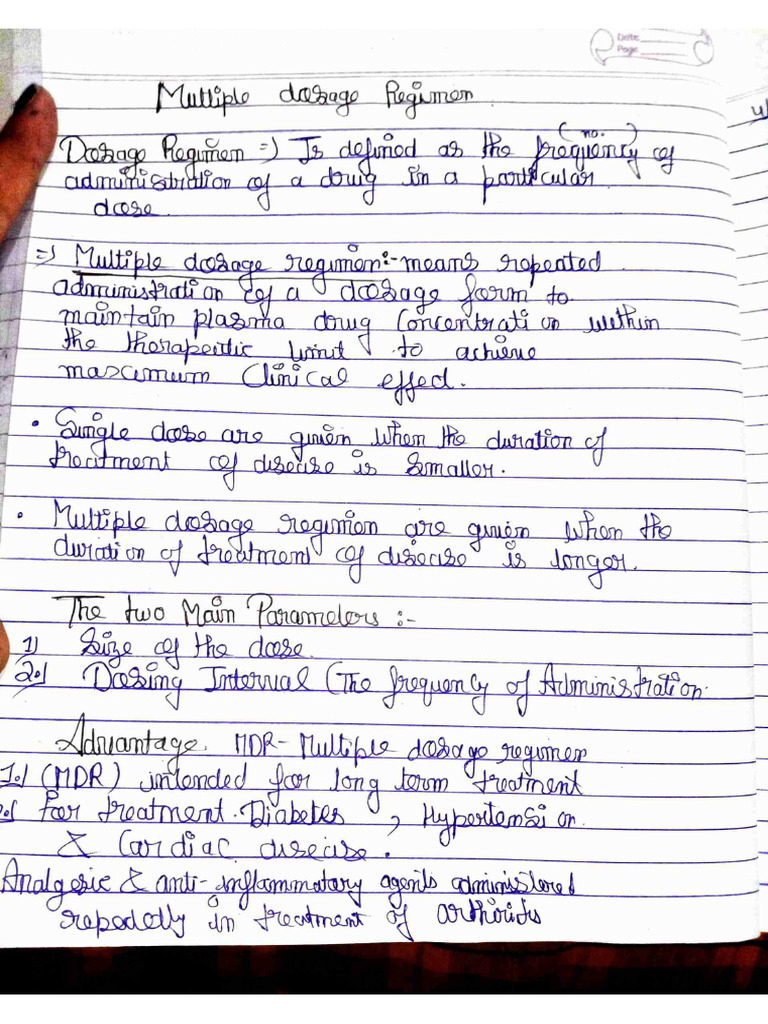 Date
Page
Multiple dosage Regimen
(no.)
Dosage Regimen => Is defined as the frequency of
administration of a drug in a particular
dose.
=> Multiple dosage regimen:- means repeated
administration of a dosage form to
maintain plasma drug Concentration within
the therapeutic limit to achieve
maximum Clinical effect.
• Single dose are given when the duration of
treatment of disease is smaller.
• Multiple dosage regimen are given when the
duration of treatment of disease is longer.
The two Main Parameters :-
1) Size of the dose.
2.) Dosing Interval (The frequency of Administration.
Advantage. MDR- Multiple dosage regimen
1.) (MDR) intended for long term treatment
For treatment. Diabetes, Hypertension
& Cardiac disease.
Analgesic & anti-inflammatory agents administered
repedolly in treatment of arthoritis